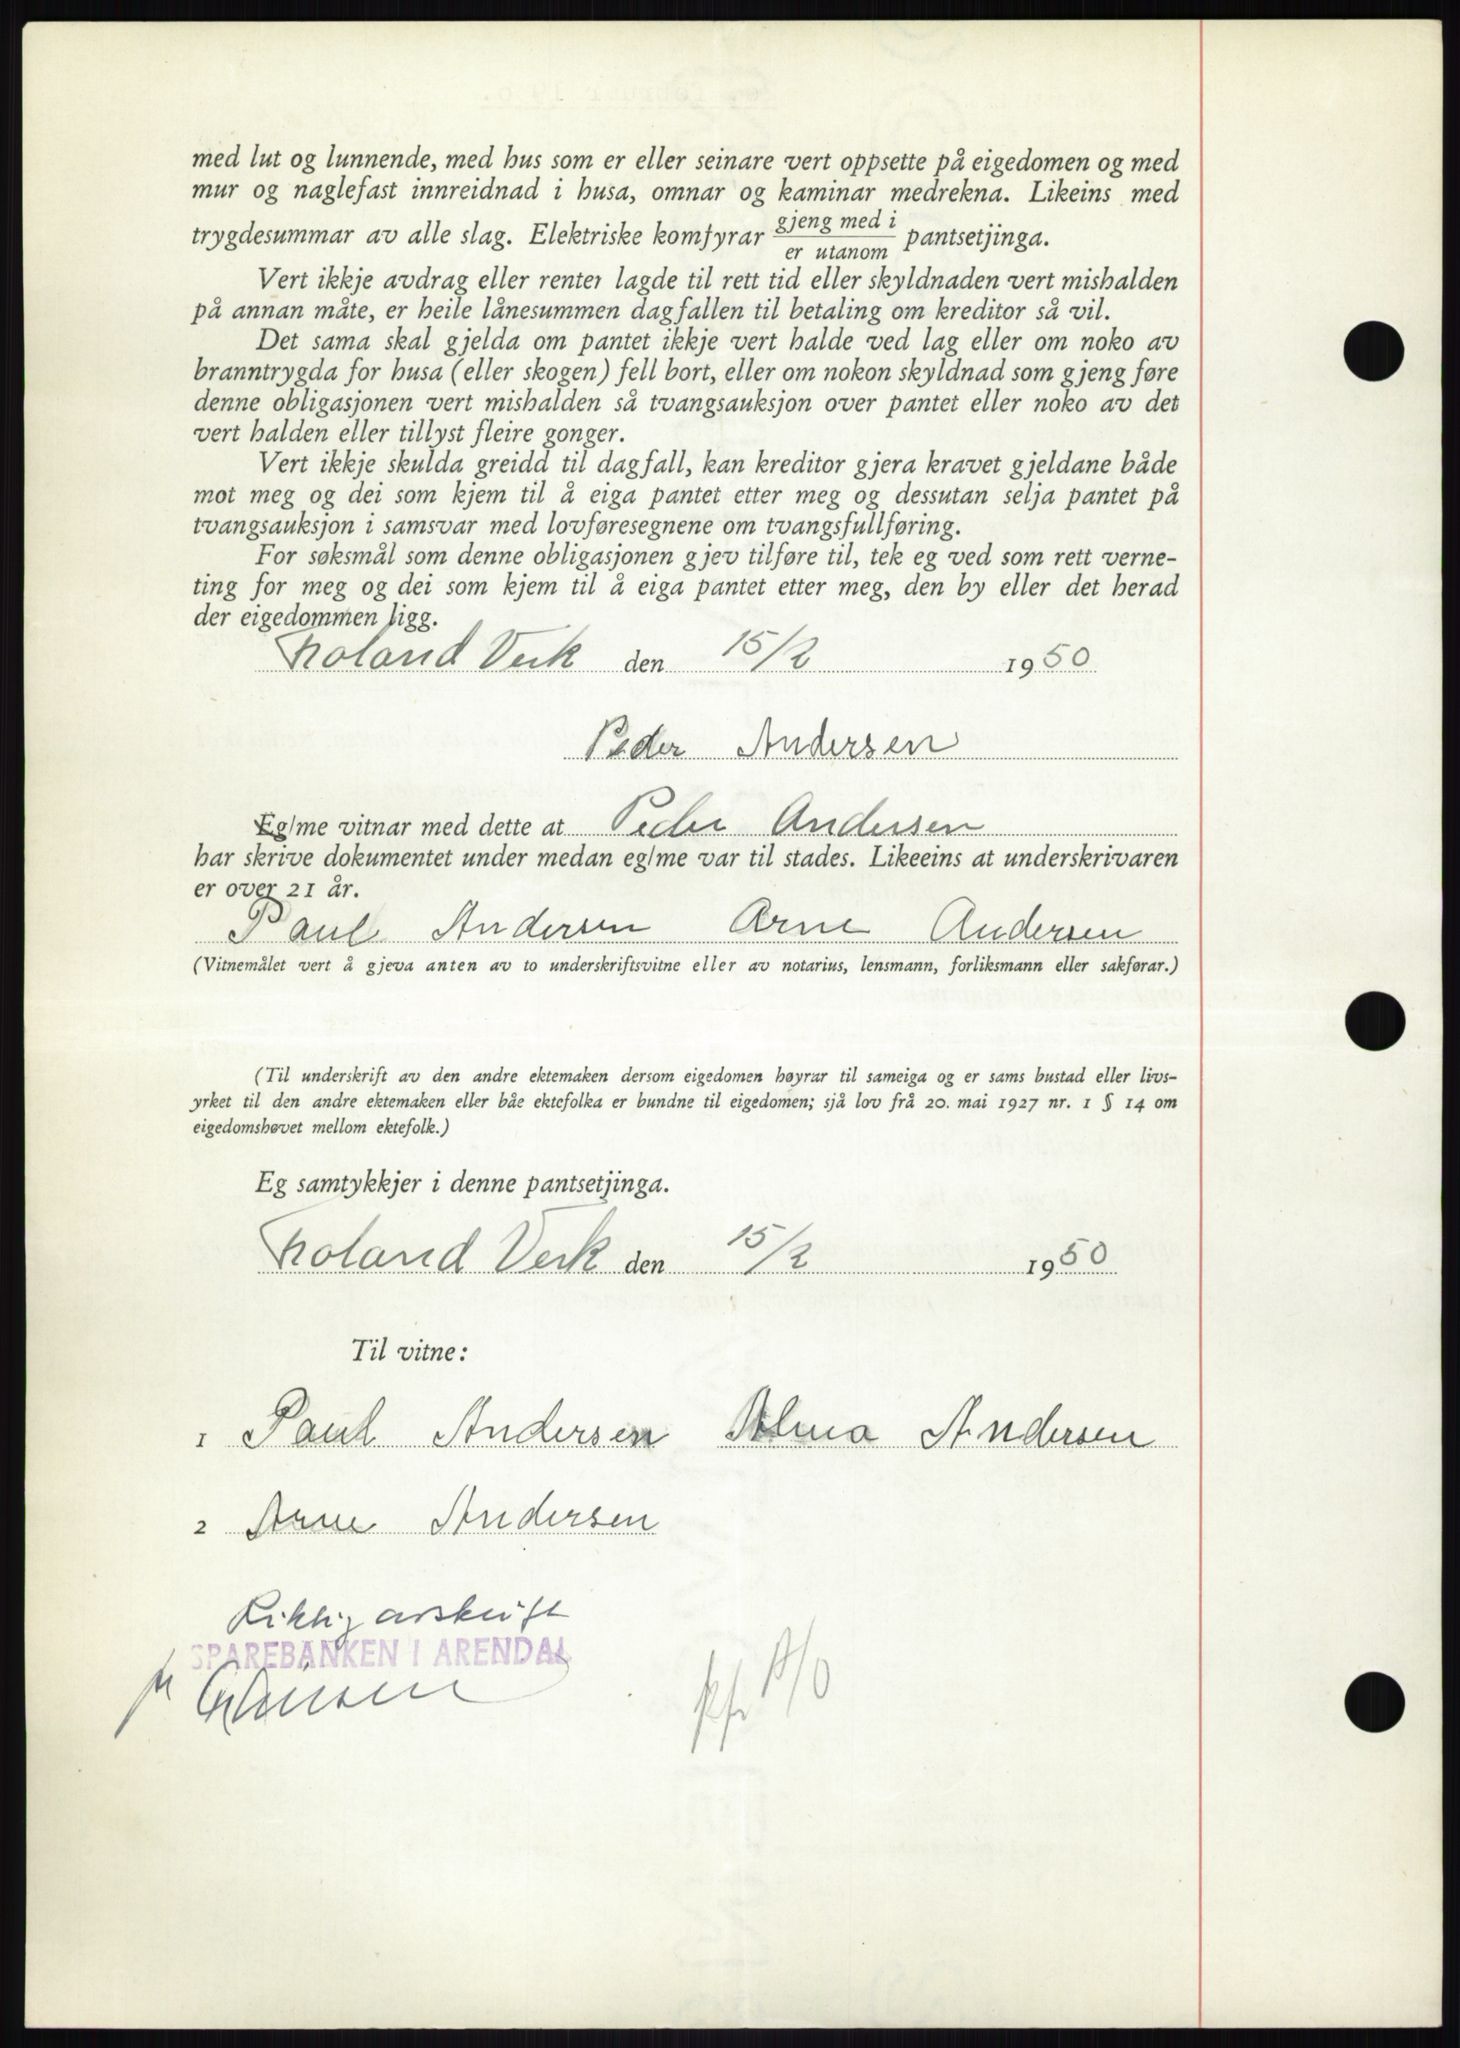 med lut og lunnende, med hus som er eller seinare vert oppsette på eigedomen og med
mur og naglefast innreidnad i husa, omnar og kaminar medrekna. Likeins med
trygdesummar av alle slag. Elektriske komfyrar gjeng med i / er utanom pantsetjinga.
Vert ikkje avdrag eller renter lagde til rett tid eller skyldnaden vert mishalden
på annan måte, er heile lånesummen dagfallen til betaling om kreditor så vil.
Det sama skal gjelda om pantet ikkje vert halde ved lag eller om noko av
branntrygda for husa (eller skogen) fell bort, eller om nokon skyldnad som gjeng føre
denne obligasjonen vert mishalden så tvangsauksjon over pantet eller noko av det
vert halden eller tillyst fleire gonger.
Vert ikkje skulda greidd til dagfall, kan kreditor gjera kravet gjeldane både
mot meg og dei som kjem til å eiga pantet etter meg og dessutan selja pantet på
tvangsauksjon i samsvar med lovføresegnene om tvangsfullføring.
For søksmål som denne obligasjonen gjev tilføre til, tek eg ved som rett verne-
ting for meg og dei som kjem til å eiga pantet etter meg, den by eller det herad
der eigedommen ligg.
Froland Verk den 15/2 1950
Peder Andersen
Eg/me vitnar med dette at Peder Andersen
har skrive dokumentet under medan eg/me var til stades. Likeeins at underskrivaren
er over 21 år.
Paul Andersen Arne Andersen
(Vitnemålet vert å gjeva anten av to underskriftsvitne eller av notarius, lensmann, forliksmann eller sakførar.)
(Til underskrift av den andre ektemaken dersom eigedomen høyrar til sameiga og er sams bustad eller livs-
yrket til den andre ektemaken eller båe ektefolka er bundne til eigedomen; sjå lov frå 20. mai 1927 nr. 1 § 14 om
eigedomshøvet mellom ektefolk.)
Eg samtykkjer i denne pantsetjinga.
Froland Verk den 15/2 1950
Til vitne:
1 Paul Andersen Alma Andersen
2 Arne Andersen
Riktig avskrift
SPAREBANKEN I ARENDAL